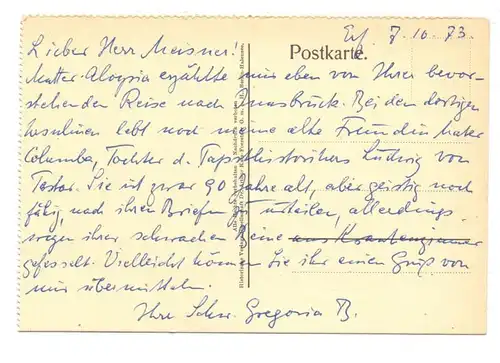 Erf. 7.10.73.
Postkarte.
Lieber Herr Meisner!
Mutter Aloysia erzählte mir eben von Ihrer bevor-
stehenden Reise nach Innsbruck. Bei den dortigen
Ursulinen lebt noch meine alte Freundin Mater
Columba, Tochter d. Papsthistorikers Ludwig von
Pastor. Sie ist zwar 90 Jahre alt, aber geistig noch
fähig, nach ihren Briefen zu urteilen, allerdings
wegen ihrer schwachen Beine ans Krankenzimmer
gefesselt. Vielleicht können Sie ihr einen Gruß von
mir übermitteln.
Ihre Schw. Gregoria B.